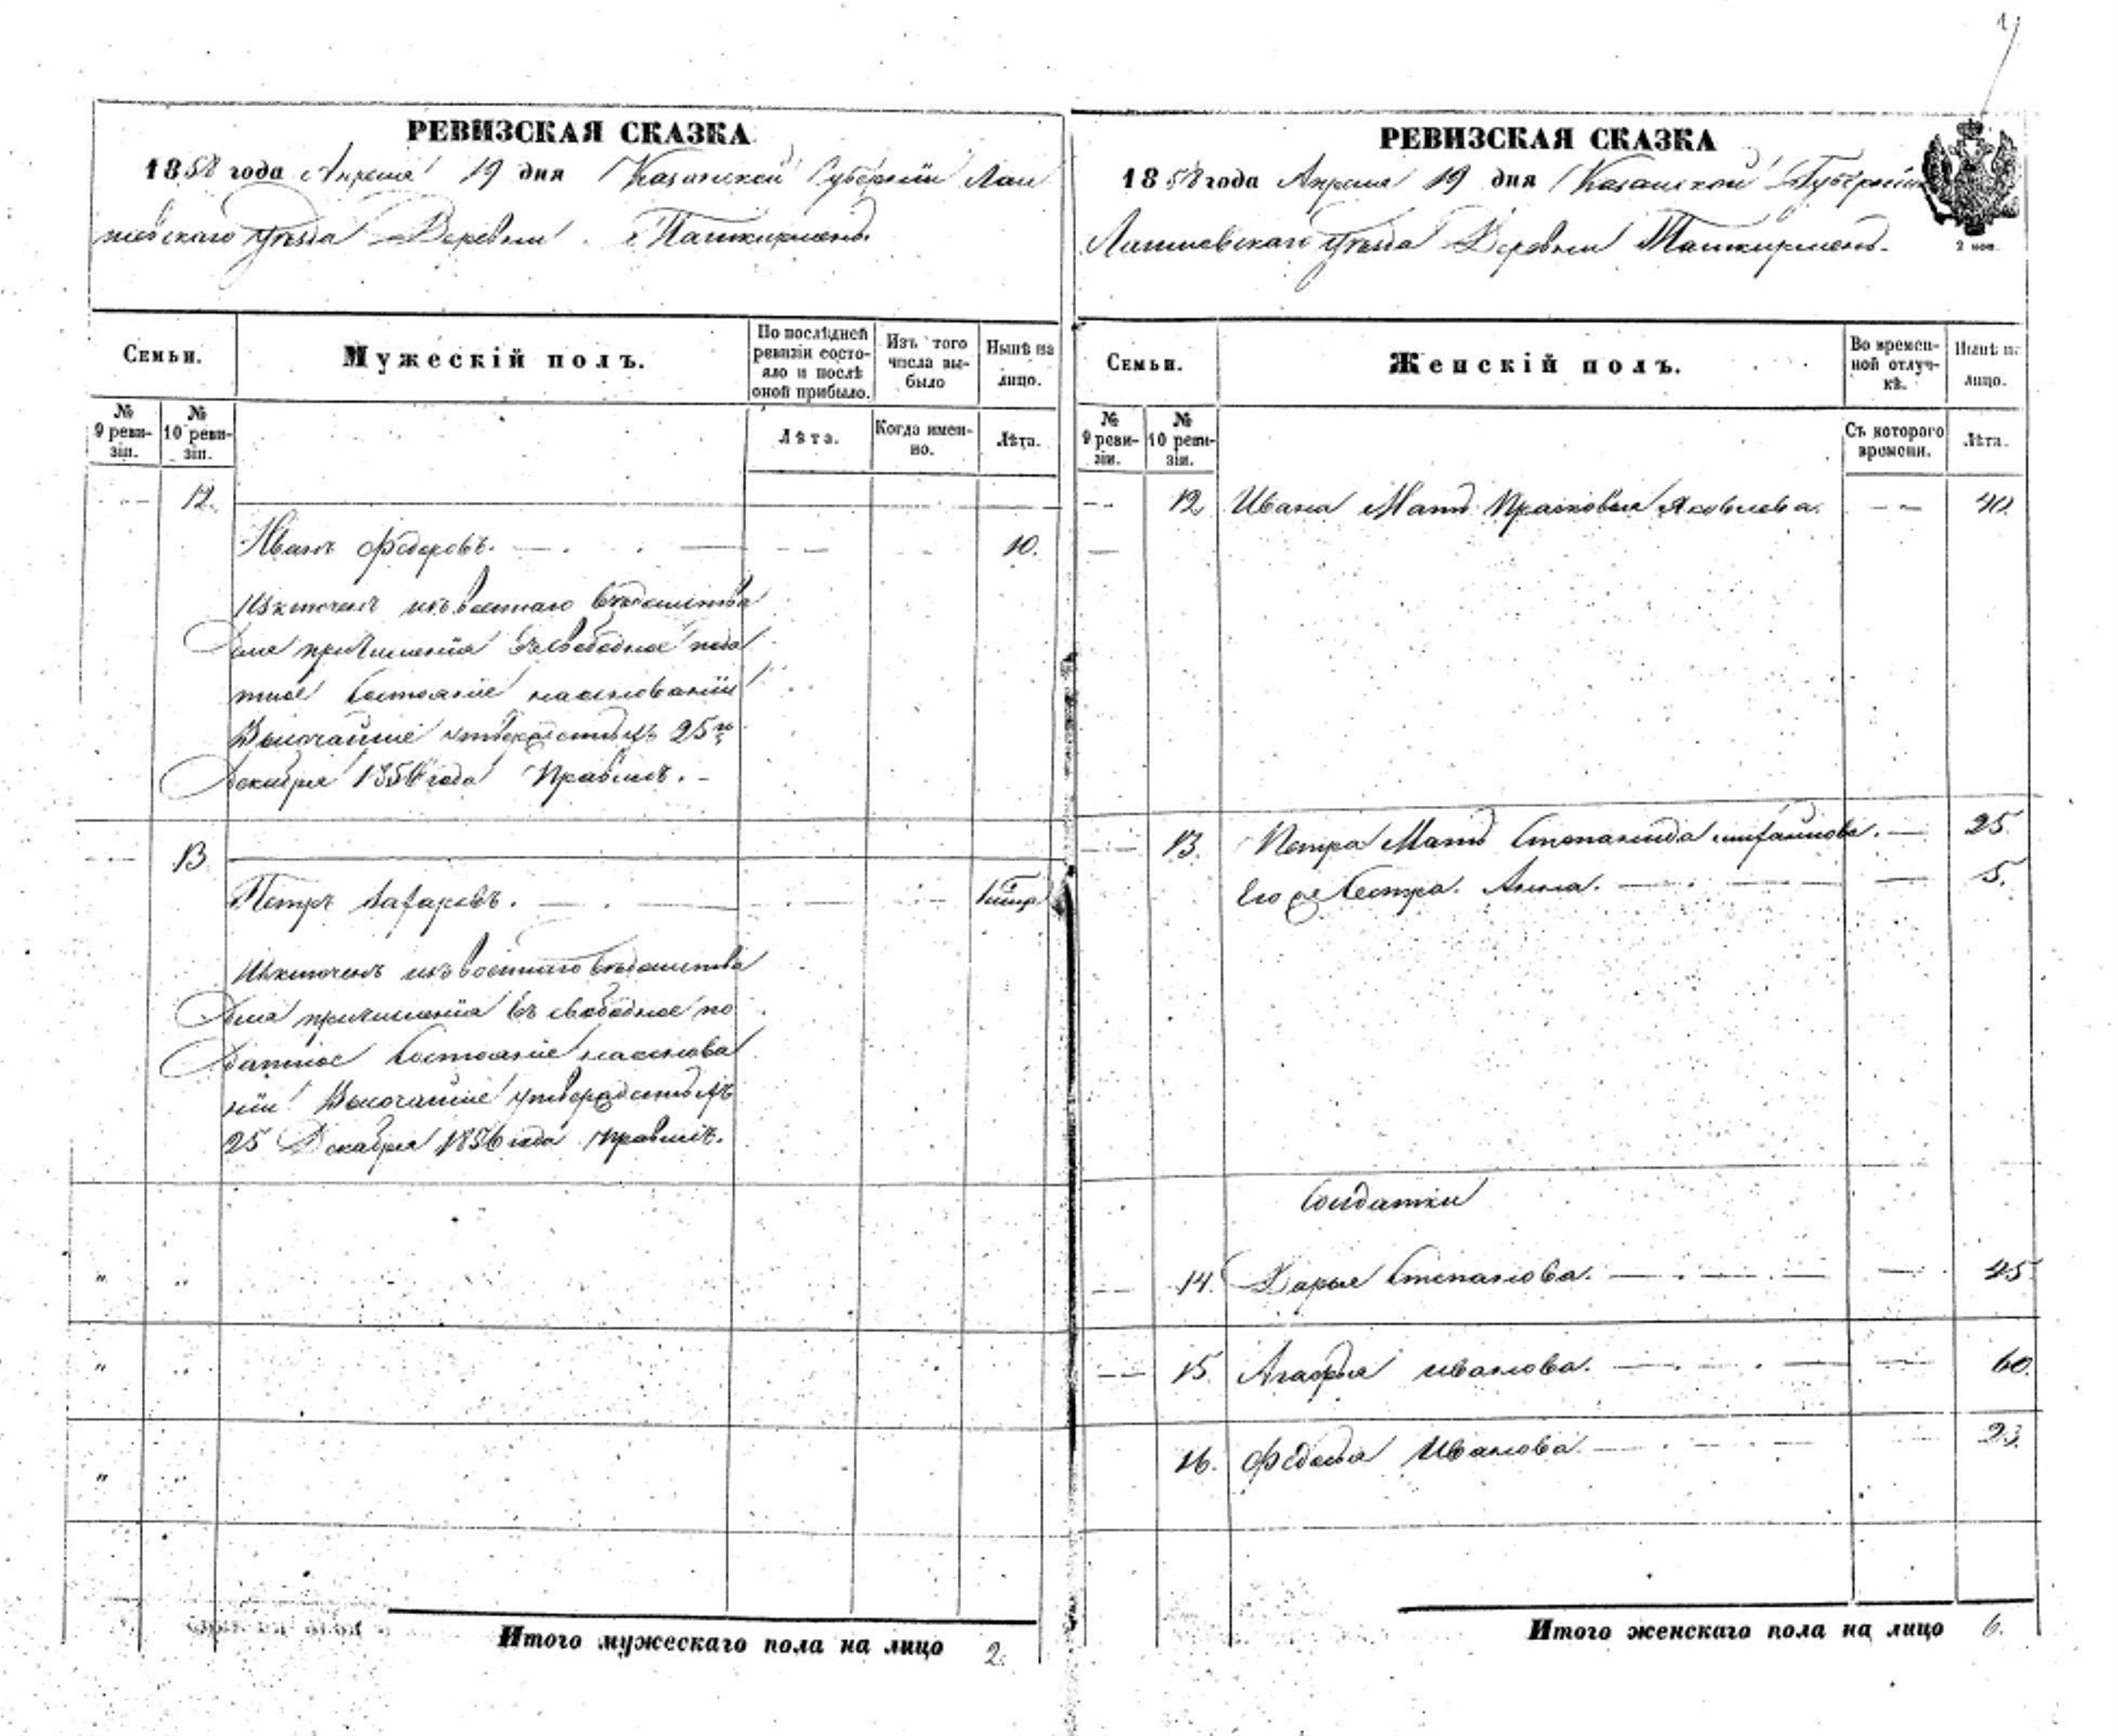 РЕВИЗСКАЯ СКАЗКА
1858 года Апреля 19 дня Казанской Губернiи Лаи
шевскаго уѣзда Деревни Ташкирмень.
Семьи.
Мужескій полъ.
По послѣдней ревизіи состояло и послѣ оной прибыло.
Изъ того числа выбыло
Нынѣ на лицо.
№ 9 ревизіи.
№ 10 ревизіи.
Лѣта.
Когда именно.
Лѣта.
12.
Иванъ Федоровъ. 10.
Исключенъ изъ военнаго вѣдомства
для причисленія въ свободное пода
тное состояніе на основаніи
Высочайше утвержденныхъ 25го
Декабря 1856 года Правилъ.
13
Петръ Захаровъ.
Исключенъ изъ военнаго вѣдомства
для причисленія въ свободное по
датное состояніе на основа
ніи Высочайше утвержденныхъ
25 Декабря 1856 года правилъ.
Итого мужескаго пола на лицо 2.
РЕВИЗСКАЯ СКАЗКА
1858 года Апреля 19 дня Казанской Губернiи
Лаишевскаго уѣзда Деревни Ташкирмень.
2 коп.
Семьи.
Женскій полъ.
Во временной отлучкѣ.
Нынѣ на лицо.
№ 9 ревизіи.
№ 10 ревизіи.
Съ котораго времени.
Лѣта.
12 Ивана Мать Прасковья Яковлева. 40.
13. Петра Мать Степанида 25.
Его же Сестра Анна. 5.
Солдатки
14. Дарья Степанова. 45.
15. Агафья Иванова. 60.
16. Федосья Иванова. 23.
Итого женскаго пола на лицо 6.